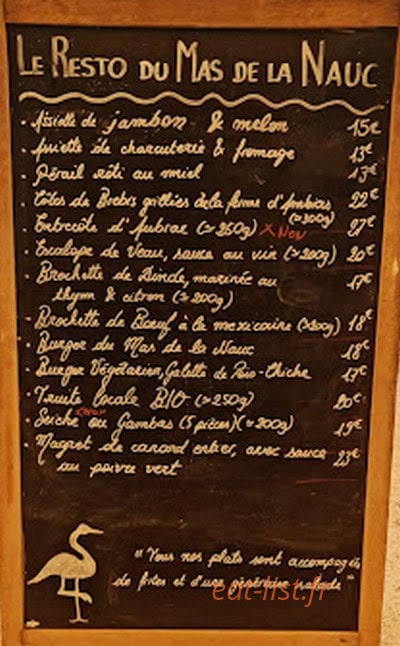 LE RESTO DU MAS DE LA NAUC
. Assiette de jambon & melon 15€
. Assiette de charcuterie & fromage 13€
. Pérail rôti au miel 13€
. Côtes de Brebis grillées de la ferme d'
(≃300g) 22€
. Entrecôte d'Aubrac (≃250g) X NON 27€
. Escalope de Veau, sauce au vin (≃200g) 20€
. Brochette de Dinde, marinée au 17€
thym & citron (≃200g)
- Brochette de Bœuf à la mexicaine (≃200g) 18€
- Burger du Mas de la Nauc 18€
- Burger Végétarien, Galette de Pois-Chiche 17€
- Truite locale BIO (≃250g) 20€
. Seiche ou Gambas (5 pièces) (≃200g) 19€
- Magret de canard entier, avec sauce 23€
au poivre vert
"Tous nos plats sont accompagnés
de frites et d'une généreuse salade"
eat-list.fr